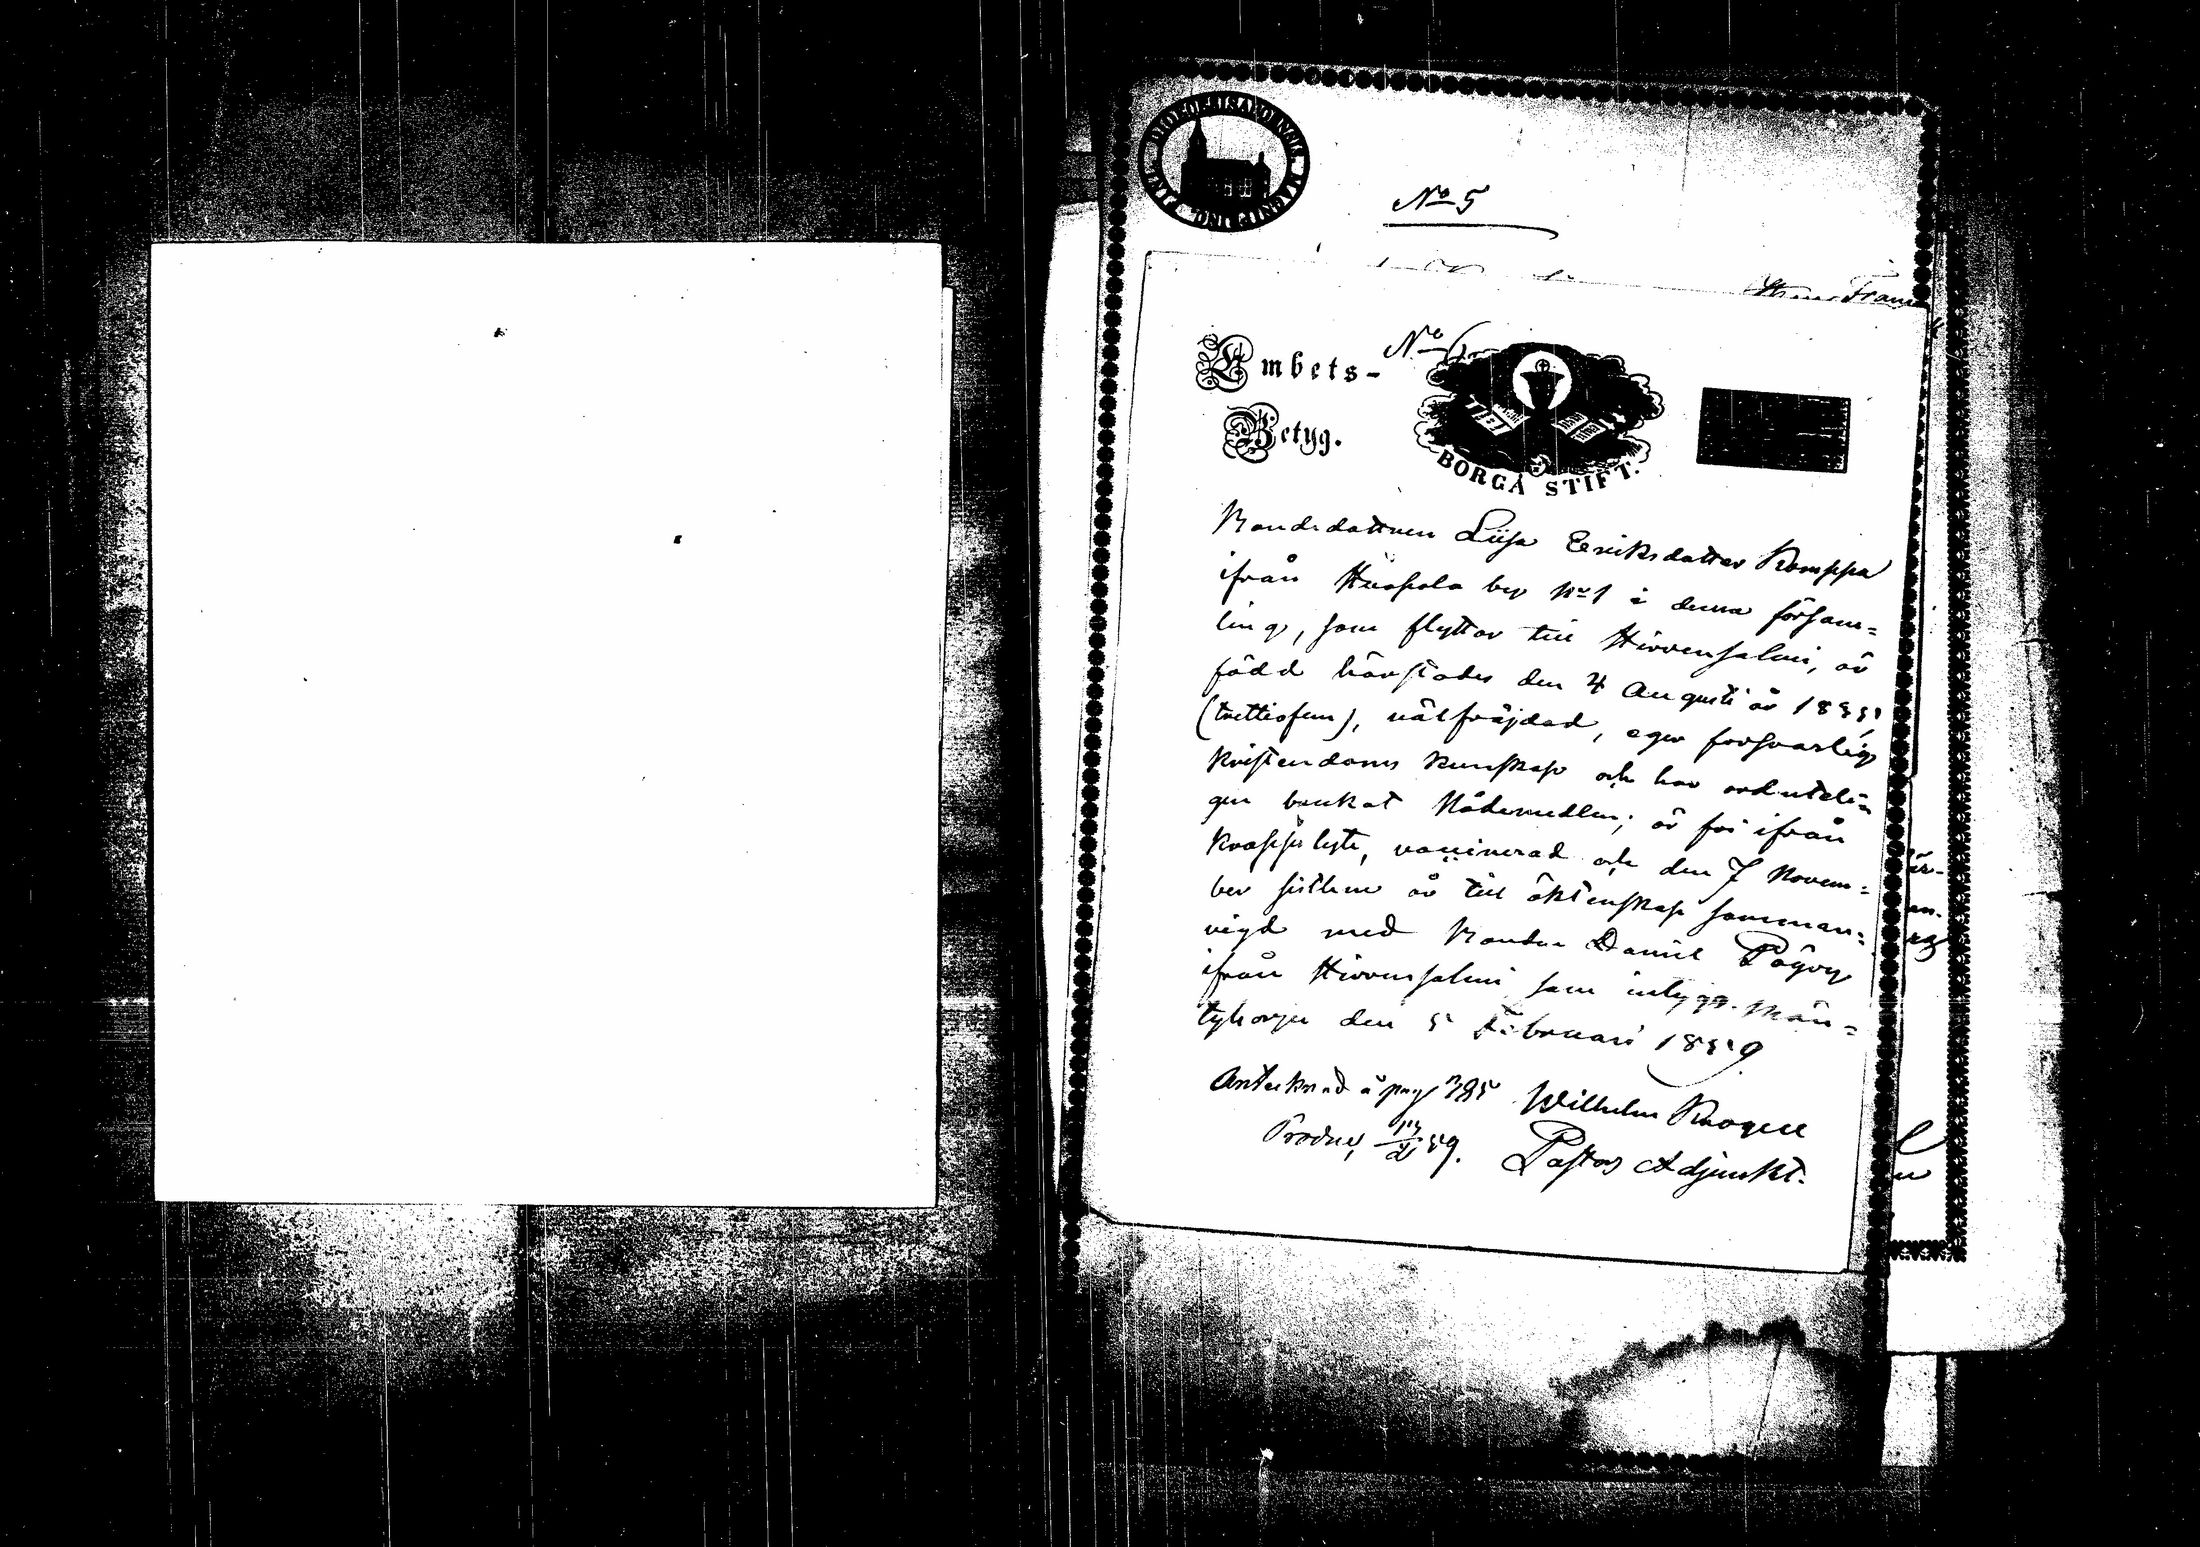 No 5
Frans
No 6
Embets-
Betyg.
BORGÅ STIFT.
Bondedottren Liisa Eeriksdotter Romppa
ifrån by No 1 i denna försam=
ling, som flyttar till Hirvensalmi, är
född härstädes den 4 Augusti år 1835
(trettiofem), välfräjdad, eger försvarlig
kristendoms kunskap och har ordenteli=
gen brukat Nådemedlen; är fri ifrån
kroppslyte, vaccinerad och den 7 Novem=
ber sistlene år till äktenskap samman=
vigd med Bonden Daniel Pöyry
ifrån Hirvensalmi som intygg. Män=
tyharju den 5 Februari 1859
Antecknad å pag 385 Wilhelm
Produc 59. Pastors Adjunkt.